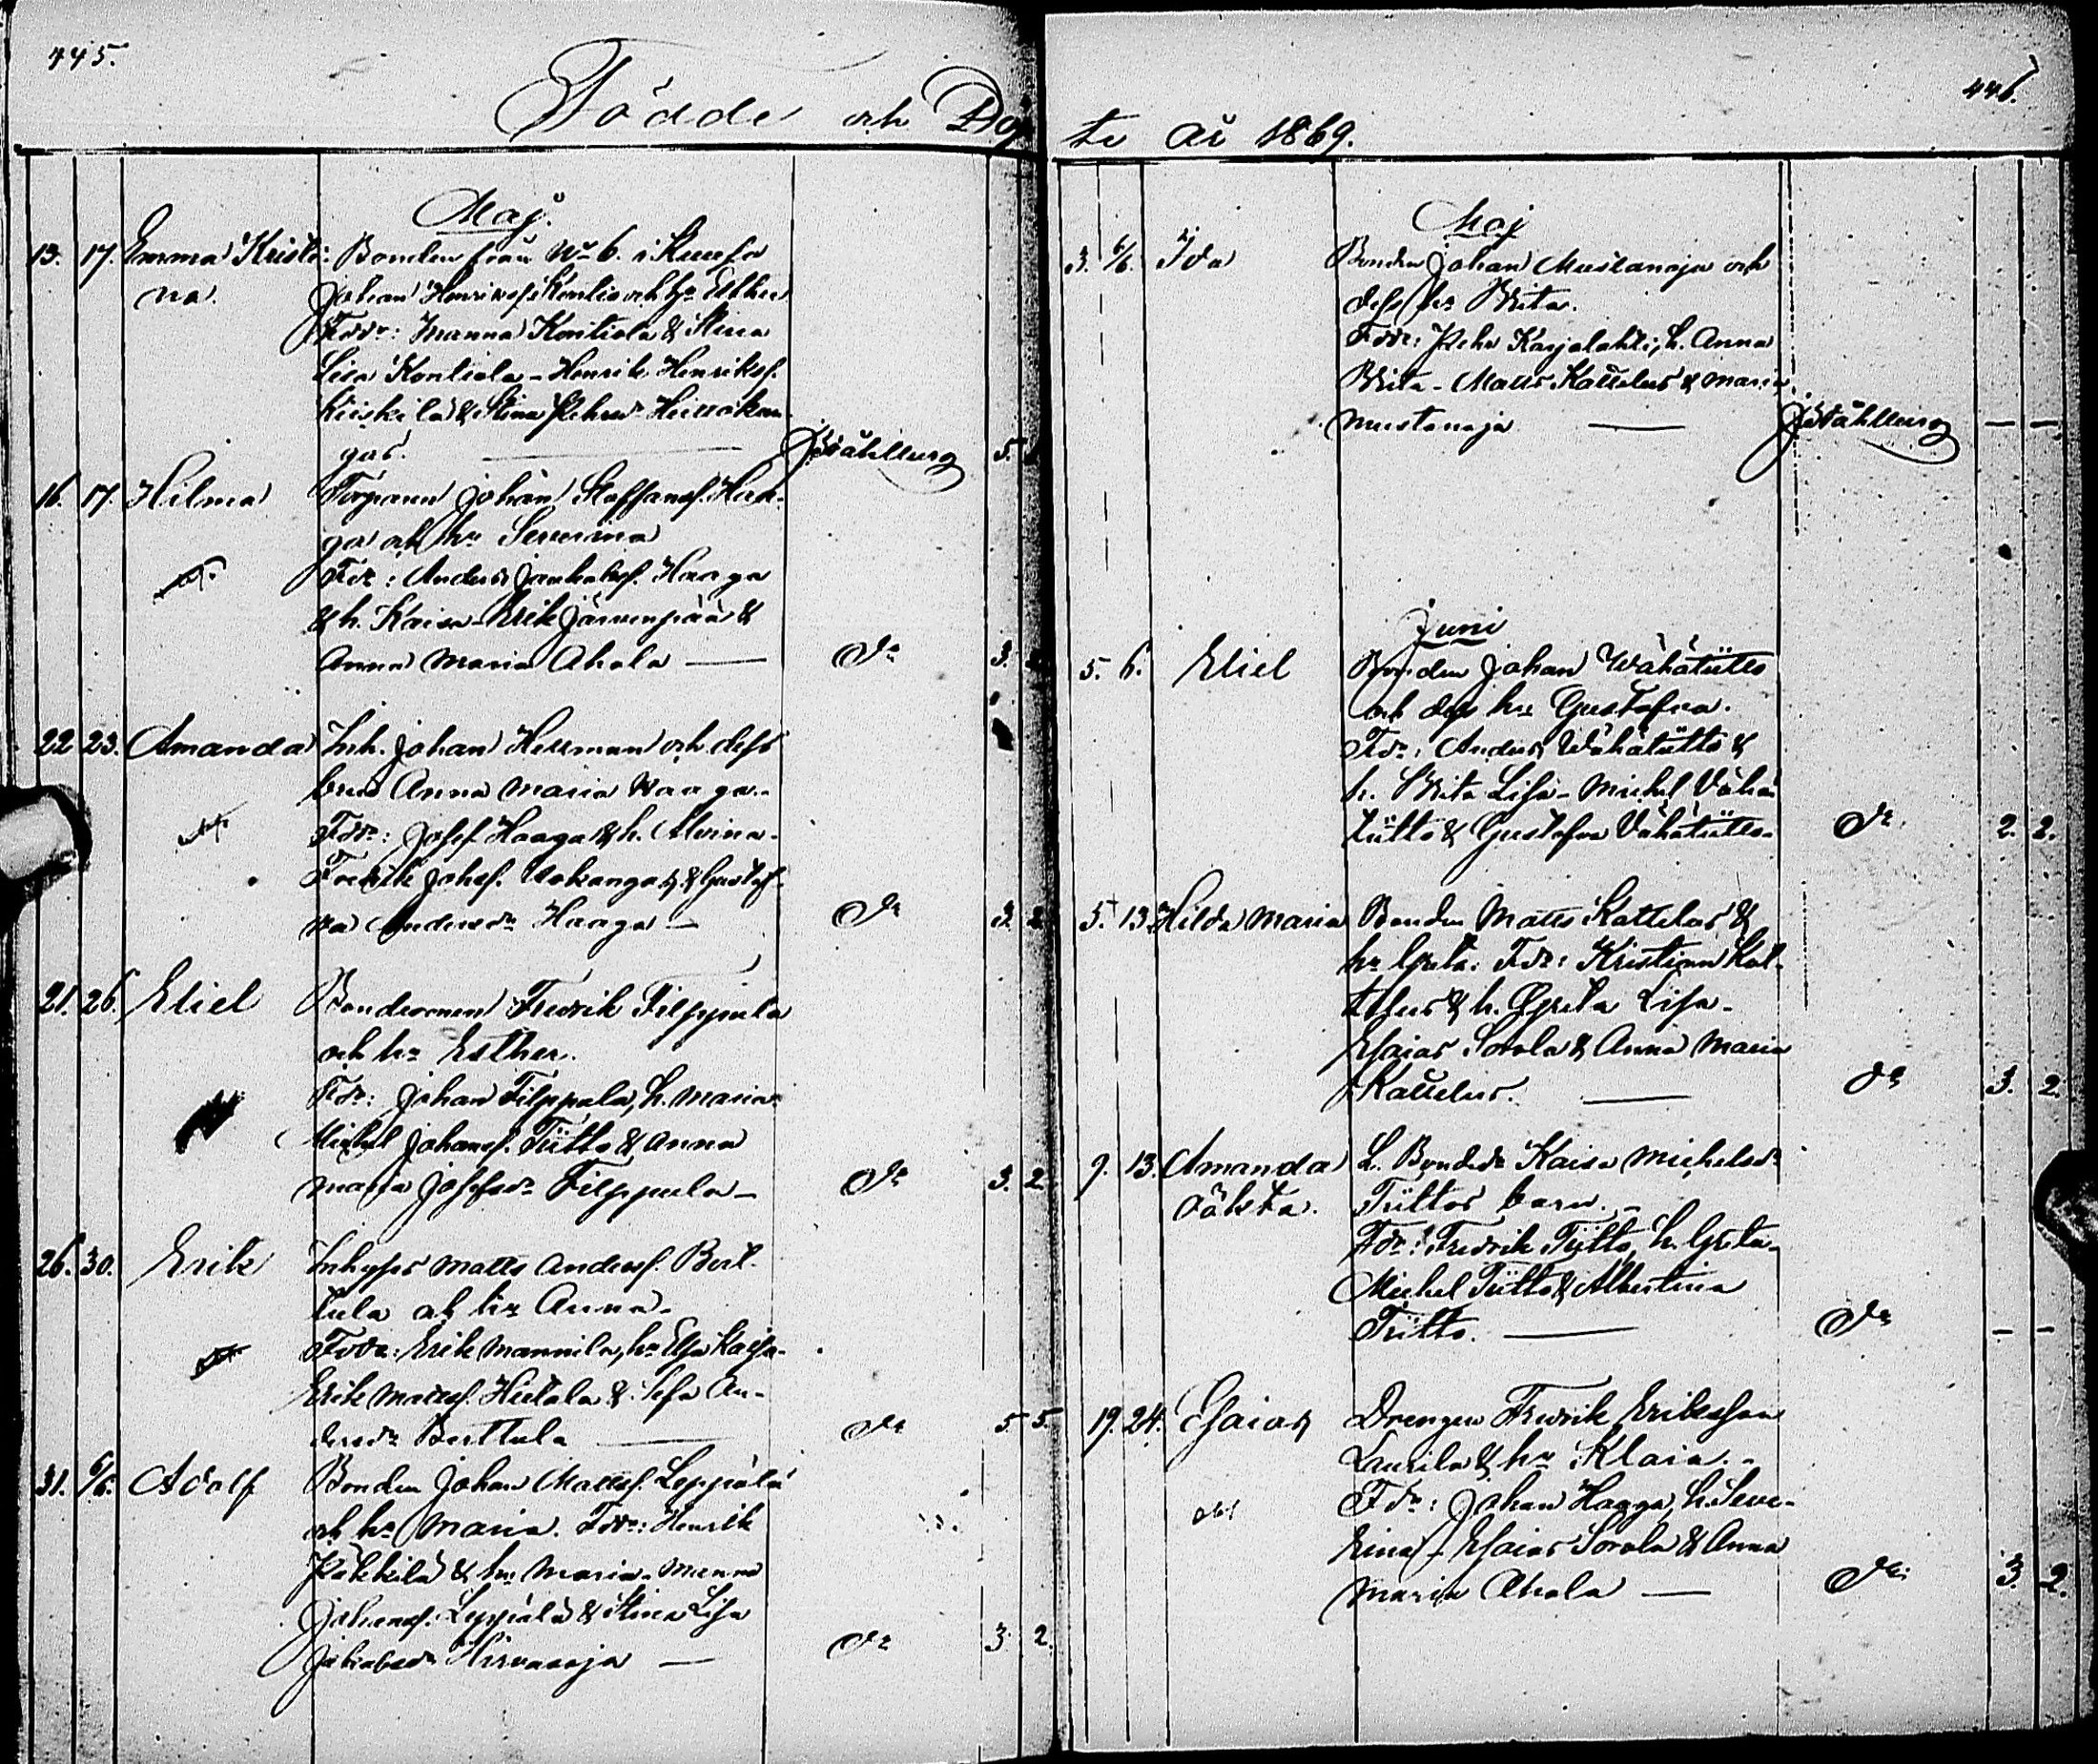 445.
Födde och Döp
Maj.
13. 17. Emma Kristi- Bonden från No 6. i
na. Johan Henriksf. och hr Esther
Fddr: Manna Kontiola & Stina
Lisa Kontiola - Henrik Henriksf.
Kiiskilä & Stina Pehrsdr
gas. — JStåhlberg 5.
16. 17. Hilma Torparen Johan Staffansf. Haa-
ga och hr Severina
Fdr: Anders Jakobsf. Haaga
& h. Kaisa - Erik Järvenpää &
Anna Maria Ahola — do 3.
22 23. Amanda Inh. Johan Herrman och dess
Anna Maria Haaga.-
Fddr: Josef Haaga & h. Alvina-
Fredrik Johsf. & Gustaf-
va Andersdr Haaga — do 3. 2
21. 26. Eliel Bondesonen Fredrik Filppula
och hr Esther.
Fdr: Johan Filppula, h. Maria-
Michel Johansf. Tüttö & Anna
Maria Josefsdr Filppula — do 3. 2
26. 30. Erik Inhyses Matts Andersf. Bert-
tula och hr Anna-
Fddr: Erik Mannila, hr Elsa Kaisa-
Erik Mattsf. Hietala & Lisa An-
dersdr Berttula — do 5 5.
31. 6/6. Adolf Bonden Johan Mattsf. Leppälä
och hr Maria. Fddr: Henrik
& hr Maria - Manna
Johansf. Leppälä & Stina Lisa
Jakobsdr Hirvanoja — do 3. 2.
446.
te år 1869.
Maj
3. 6/6. Ida Bonden Johan Mustanoja och
dess hr Brita.
Fddr: Pehr Karjalahti, h. Anna
Brita - Matts Kattelus & Maria
Mustanoja — JStåhlberg — —
Juni
5. 6. Eliel Bonden Johan Wähätüttö
och dess hr Gustafva.
Fdr: Anders Wähätüttö &
h. Brita Lisa - Michel Vähä
tüttö & Gustafva Vähätüttö- do 2. 2.
5. 13. Hilda Maria Bonden Matts Kattelus &
hr Greta: Fdr: Kristian Kat-
telus & h. Greta Lisa-
Esaias Sorola & Anna Maria
Kattelus. — do 3. 2.
9. 13. Amanda L. Bondedr Kaisa Michelsdr
oäkta. Tüttös barn.-
Fdr: Fredrik Tüttö, h. Greta-
Michel Tüttö & Albertina
Tüttö. — do — —
19. 24. Esaias Drengen Fredrik Eriksson
Laurila & hr Klara.-
obs Fdr: Johan Hagga, h. Seve-
rina - Esaias Sorola & Anna
Maria Ahola — do 3. 2.